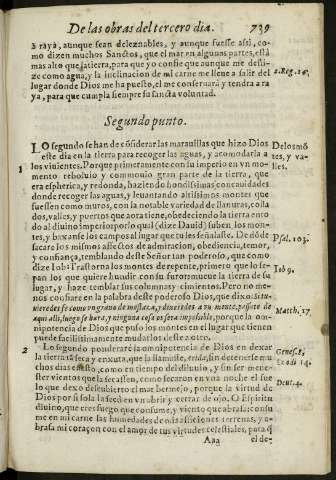 De las obras del tercero dia. 739
a raya, aunque sean deleznables, y aunque fuesse assi, co-
mo dizen muchos Sanctos, que el mar en algunas partes, està
mas alto que la tierra, para que yo confie que aunque me desli-
ze como agua, y la inclinacion de mi carne me lleue a salir del
lugar donde Dios me ha puesto, el me conseruarà y tendra a ra
ya, para que cumpla siempre su sancta voluntad.
2. Reg. 14.
Segundo punto.
LO segundo se han de cõsiderar las marauillas que hizo Dios
este dia en la tierra para recoger las aguas, y acomodarla a
los viuientes. Porque primeramente con su imperio en vn mo-
mento reboluio y commouio gran parte de la tierra, que
era espherica, y redonda, haziendo hondissimas concauidades
donde recoger las aguas, y leuantando altissimos montes que
fuessen como muros, con la notable variedad de llanuras, colla
dos, valles, y puertos que aora tiene, obedeciendo la tierra ento
do al diuino imperio por lo qual (dize Dauid) suben los mon-
tes, y baxanse los campos al lugar que tu les señalaste. De dõde
sacare los mismos affectos de admiracion, obediencia, temor,
y confiança, temblando deste Señor tan poderoso, que como
dize Iob: Trastorna los montes de repente, primero que lo se-
pan los que quiere hundir con su furor mueue la tierra de su
lugar, y haze temblar sus columnas y cimientos. Pero no me-
nos confiare en la palabra deste poderoso Dios, que dixo: si tu-
uieredes fe como vn grano de mostaca, y dixeredes a vn monte, passate de
aqui alli, luego se hara, y ninguna cosa os sera impossible, porque la om-
nipotencia de Dios que puso los montes en el lugar que tienen
puede facilissimamente mudarlos desse a otro.
Lo segundo ponderarè la omnipotencia de Dios en dexar
la tierra seca y enxuta, que la llamasse, arida, sin detenerse mu
chos dias esto, como en tiempo del diluuio, y sin ser menes-
ter vientos que la secassen, como secaron en vna noche el sue-
lo que dexo descubierto el mar bermejo, porque la virtud de
Dios por si sola la seco en vn abrir y cerrar de ojo. O Espiritu
diuino, que eres fuego que consume, y viento que abrasa: consu
me en mi carne las humedades de mis afficiones terrenas, y a-
brasa mi coraçon con el amor de tus virtudes celestiales, para q̃
1
2
De los mõ
tes, y va-
lles.
Psal. 103.
Iob 9.
Matth. 17
Genes. 8.
Exodi 14.
Deut. 4.
Aaa el de-